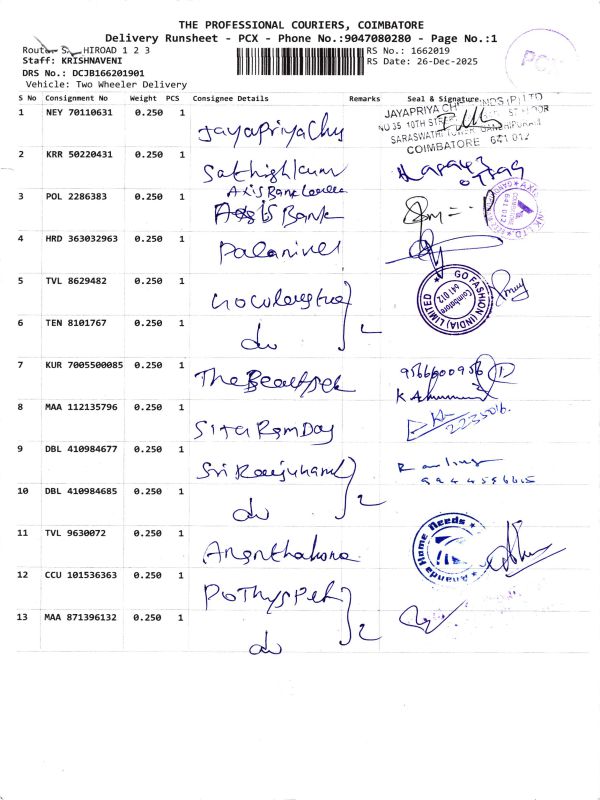 THE PROFESSIONAL COURIERS, COIMBATORE
Delivery Runsheet - PCX - Phone No.:9047080280 - Page No.:1
HIROAD 1 2 3
RS No.: 1662019
PCX
Staff: KRISHNAVENI
RS Date: 26-Dec-2025
DRS No.: DCJB166201901
Vehicle: Two Wheeler Delivery
S No Consignment No Weight PCS Consignee Details Remarks Seal & Signature
1 NEY 70110631 0.250 1 Jayapriya
JAYAPRIYA
NO 35 10TH
SARASWATHI
COIMBATORE 641 012
2 KRR 50220431 0.250 1 Sathish
3 POL 2286383 0.250 1 Axis Bank
Axis Bank
4 HRD 363032963 0.250 1 Palanivel
5 TVL 8629482 0.250 1
GO FASHION (INDIA) LIMITED
Coimbatore
641 012
6 TEN 8101767 0.250 1 do 2
7 KUR 7005500085 0.250 1 The
9566600956
8 MAA 112135796 0.250 1 Sita Ram Day
2235016.
9 DBL 410984677 0.250 1 Sri
10 DBL 410984685 0.250 1 do 2
11 TVL 9630072 0.250 1
Ananda Home Needs
12 CCU 101536363 0.250 1 Pothys
13 MAA 871396132 0.250 1 do 2